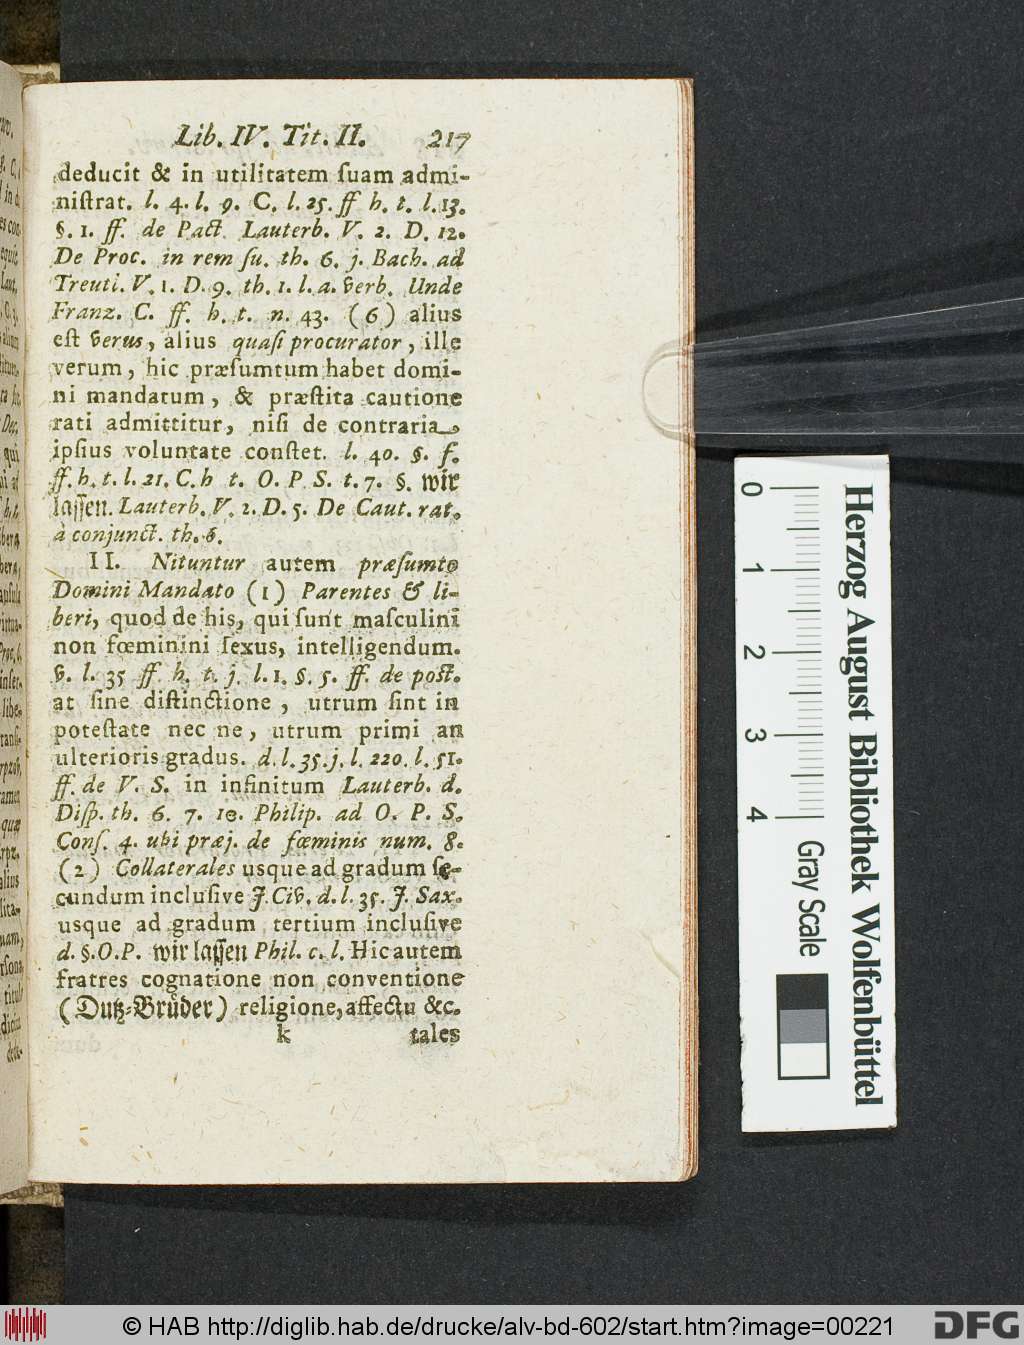 Lib. IV. Tit. II. 217
deducit & in utilitatem ſuam admi-
niſtrat. l. 4. l. 9. C. l. 25. ff h. t. l. 13.
§. 1. ff. de Pact. Lauterb. V. 2. D. 12.
De Proc. in rem ſu. th. 6. j. Bach. ad
Treuti. V. 1. D. 9. th. 1. l. a. verb. Unde
Franz. C. ff. h. t. n. 43. (6) alius
eſt verus, alius quaſi procurator, ille
verum, hic præſumtum habet domi-
ni mandatum, & præſtita cautione
rati admittitur, niſi de contraria
ipſius voluntate conſtet. l. 40. §. f.
ff. h. t. l. 21. C. h t. O. P. S. t. 7. §. wir
laſſen. Lauterb. V. 2. D. 5. De Caut. rat.
à conjunct. th. 6.
II. Nituntur autem præſumto
Domini Mandato (1) Parentes & li-
beri, quod de his, qui ſunt maſculini
non fœminini ſexus, intelligendum.
v. l. 35 ff. h. t. j. l. 1. §. 5. ff. de poſt.
at ſine diſtinctione, utrum ſint in
poteſtate nec ne, utrum primi an
ulterioris gradus. d. l. 35. j. l. 220. l. 51.
ff. de V. S. in infinitum Lauterb. d.
Diſp. th. 6. 7. 10. Philip. ad O. P. S.
Conſ. 4. ubi præj. de fœminis num. 8.
(2) Collaterales usque ad gradum ſe-
cundum incluſive J. Civ. d. l. 35. J. Sax.
usque ad gradum tertium incluſive
d. §. O. P. wir laſſen Phil. c. l. Hic autem
fratres cognatione non conventione
(Dutz-Brüder) religione, affectu &c.
k tales
0 1 2 3 4
Gray Scale
Herzog August Bibliothek Wolfenbüttel
© HAB http://diglib.hab.de/drucke/alv-bd-602/start.htm?image=00221
DFG